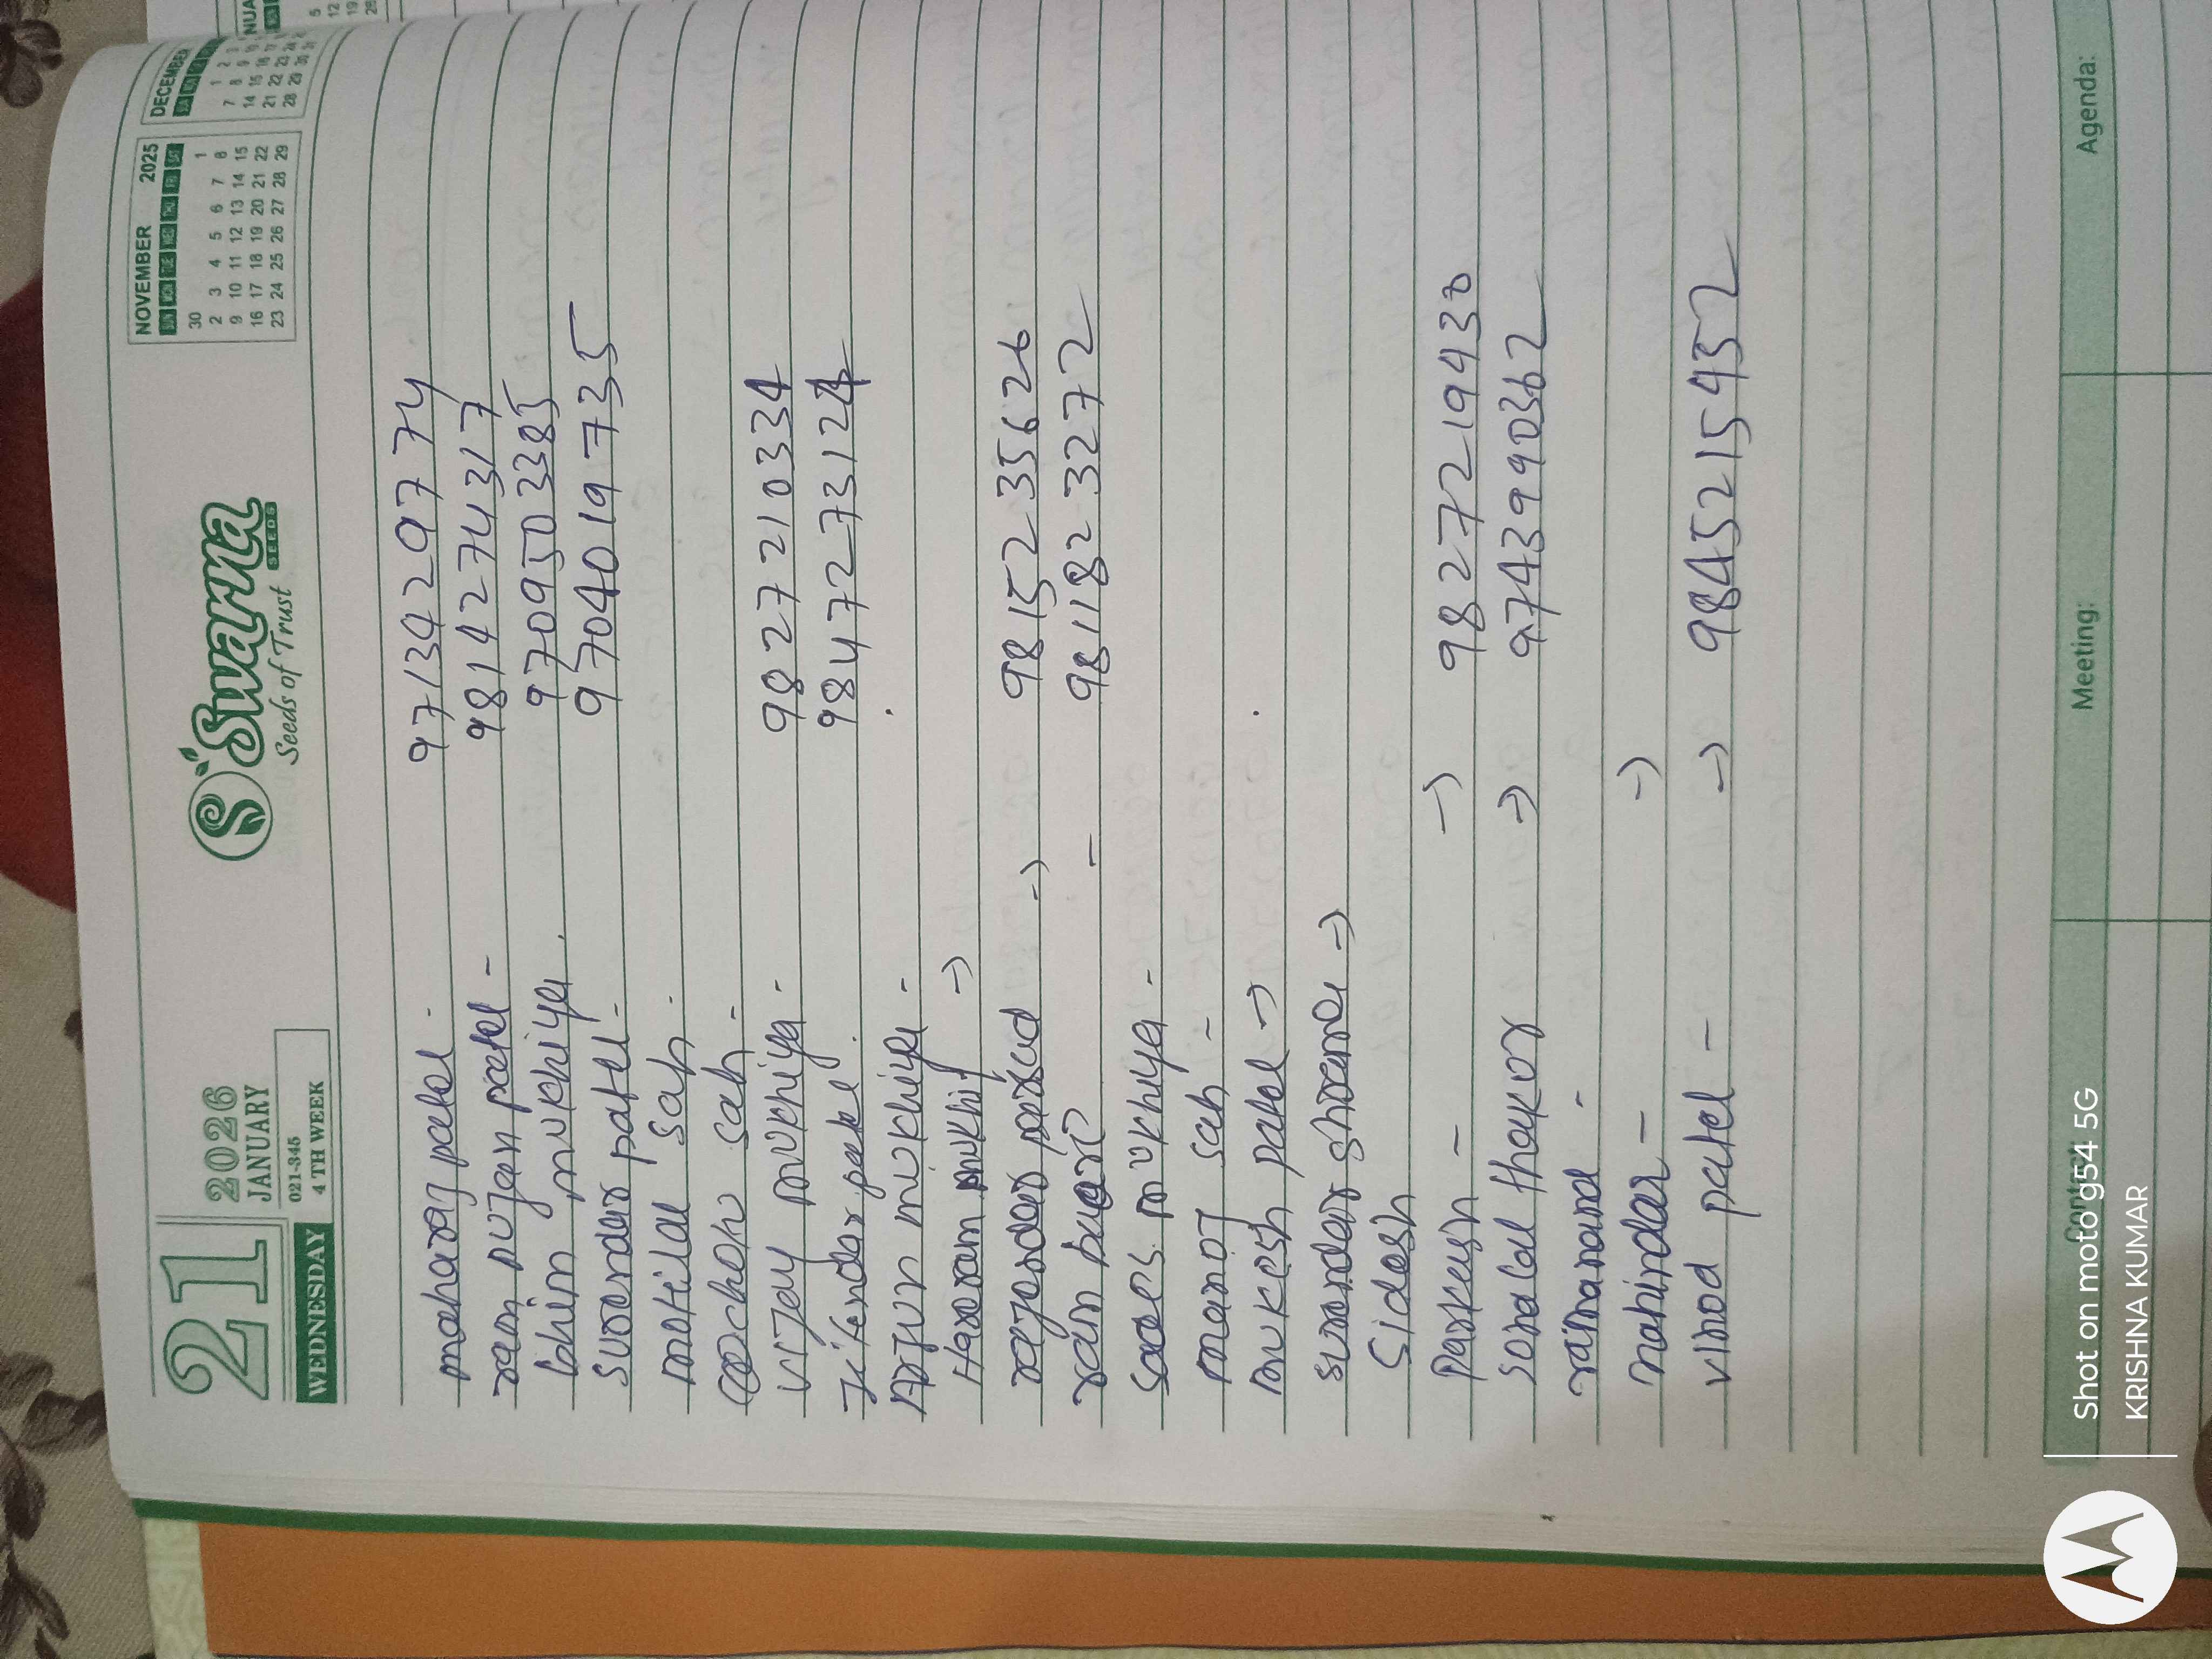 21
2026
JANUARY
WEDNESDAY
021-345
4 TH WEEK
Swarna
SEEDS
Seeds of Trust
NOVEMBER 2025
SUN MON TUE WED THU FRI SAT
30 1
2 3 4 5 6 7 8
9 10 11 12 13 14 15
16 17 18 19 20 21 22
23 24 25 26 27 28 29
DECEMBER
maharaj patel - 9713429774
ram pujan patel - 9814274317
bhim mukhiya. 9709503385
surender patel - 9704019735
motilal sah -
sah -
vijay mukhiya - 9827210334
jitender patel. 9847273124
Arjun mukhiya -
Hareram mukhiy ->
rajender parsad -> 9815235626
ram - 9811823272
mukhiya -
manoj sah -
mukesh patel ->
surender sharama ->
Sidesh
parkesh - -> 9827219430
sonalal thakor -> 9743990362
ramanand -
mahinder - ->
vinod patel - -> 9845215452
Contact
Meeting:
Agenda:
Shot on moto g54 5G
KRISHNA KUMAR